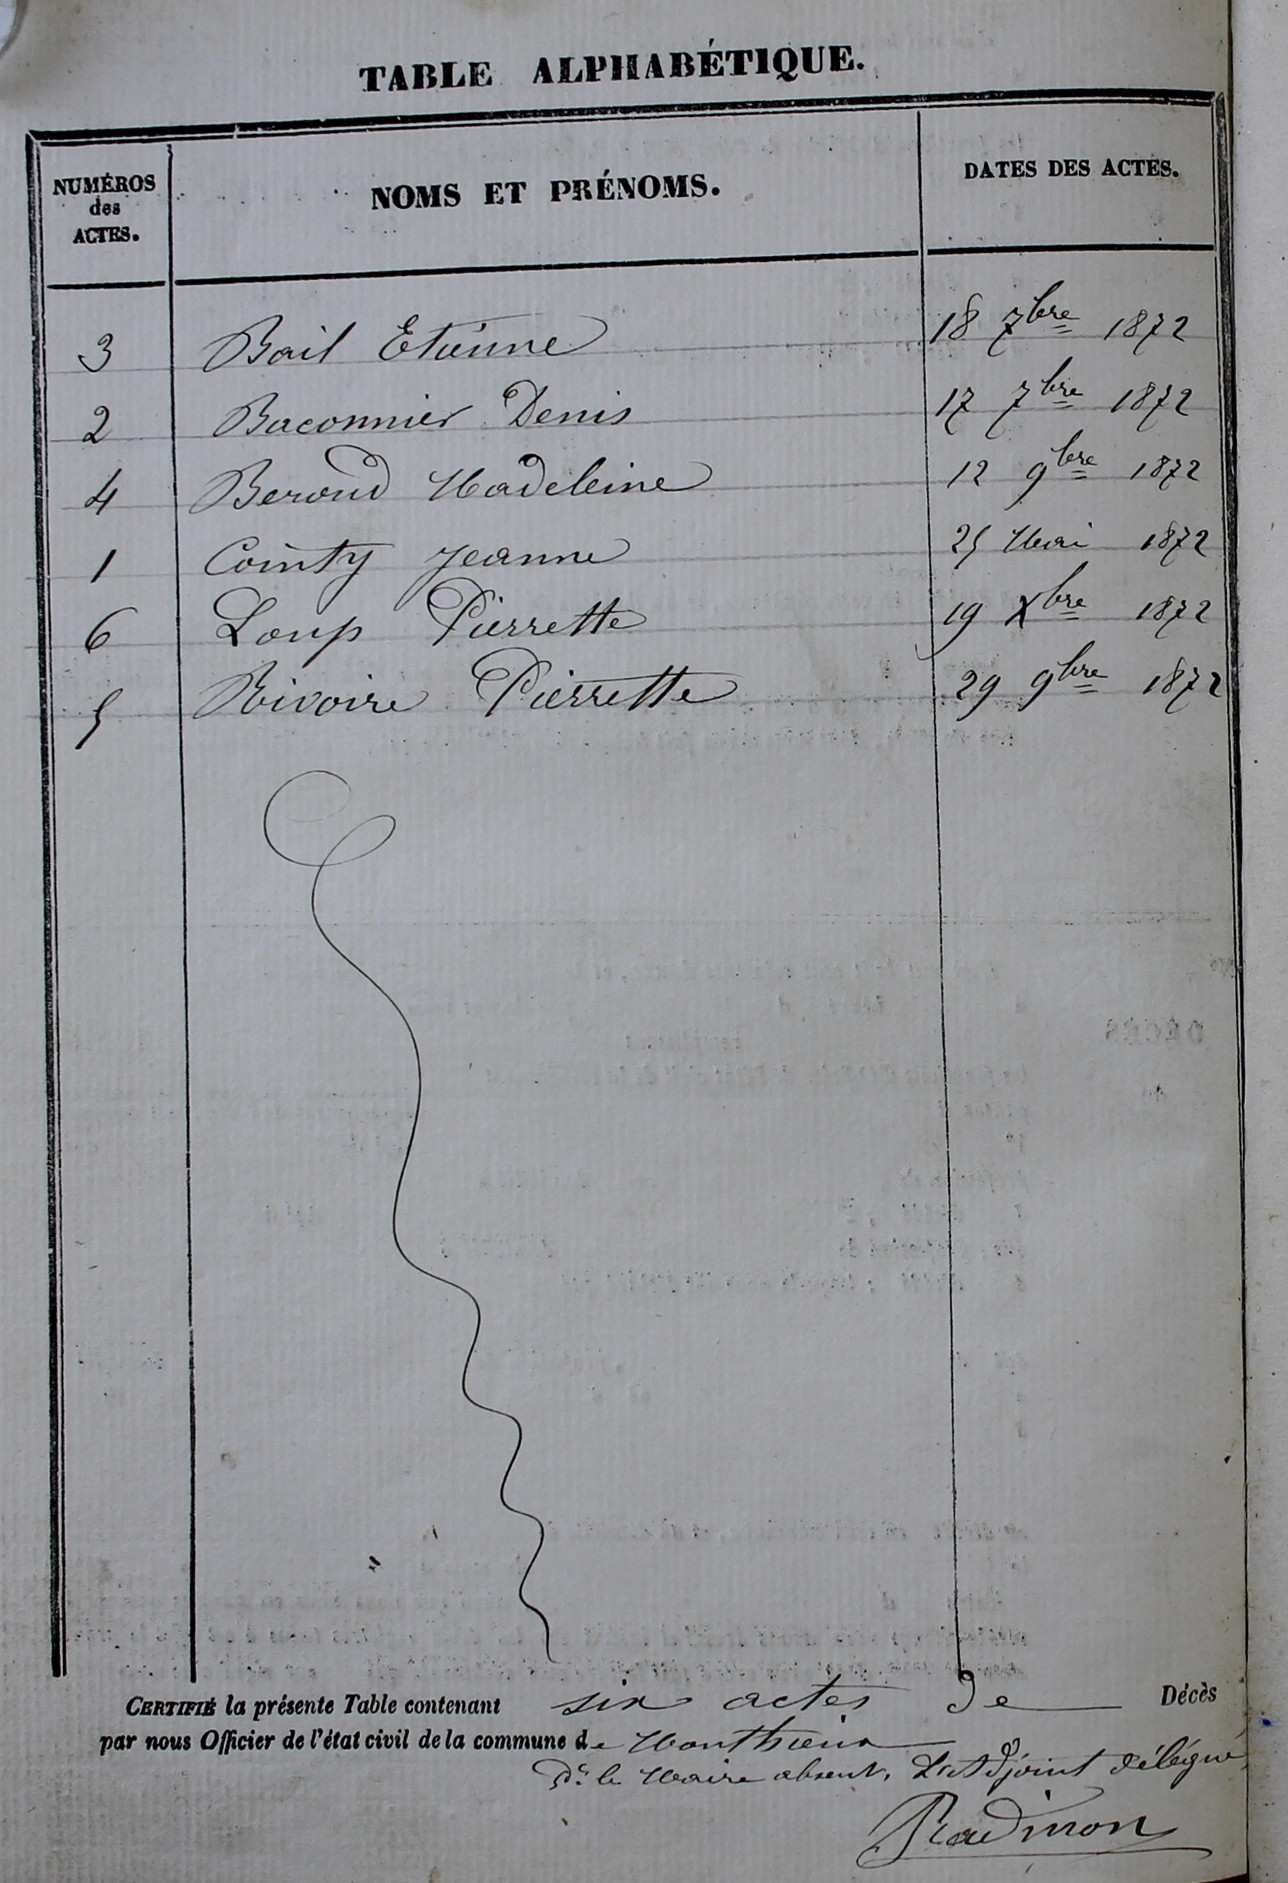 TABLE ALPHABÉTIQUE.
NUMÉROS
des
ACTES.
NOMS ET PRÉNOMS.
DATES DES ACTES.
3 Bail Etienne 18 7bre 1872
2 Baconnier Denis 17 7bre 1872
4 Beroud Madeleine 12 9bre 1872
1 Cointy Jeanne 25 Mai 1872
6 Loup Pierrette 19 Xbre 1872
5 Rivoire Pierrette 29 9bre 1872
CERTIFIÉ la présente Table contenant six actes de Décès
par nous Officier de l'état civil de la commune de Monthieux
Pr le Maire absent, L'adjoint délégué,